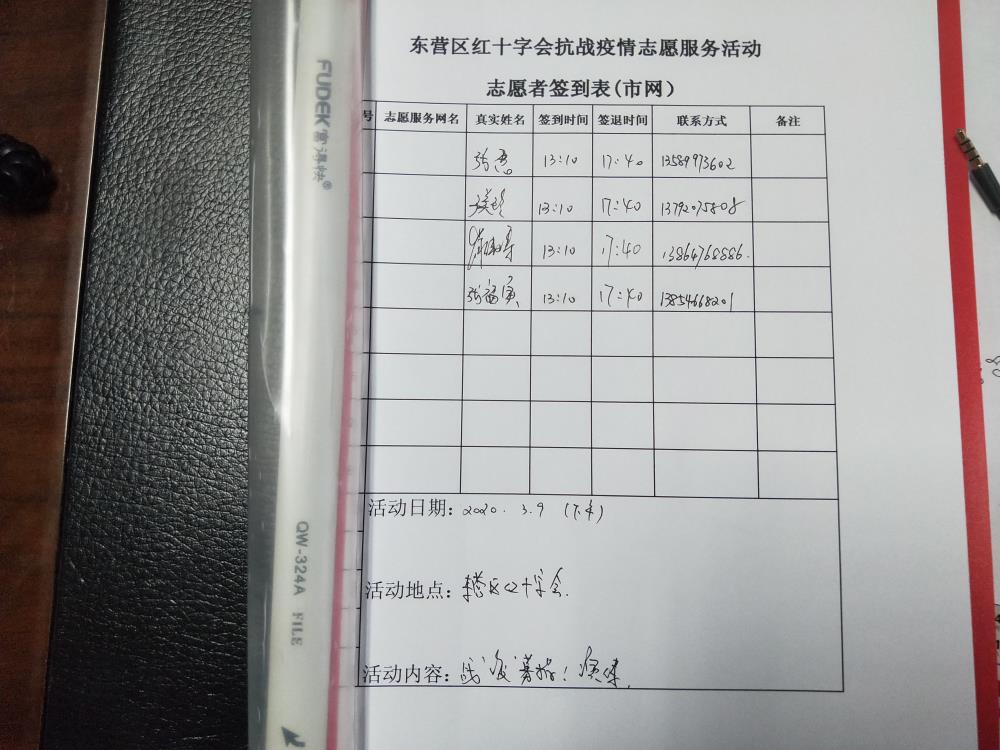 东营区红十字会抗战疫情志愿服务活动
志愿者签到表(市网)
号 志愿服务网名 真实姓名 签到时间 签退时间 联系方式 备注
13:10 17:40 13589973602
13:10 17:40 13792075808
13:10 17:40 13864768886.
张福滨 13:10 17:40 13854668201
活动日期: 2020. 3.9 (下午)
活动地点: 东营区红十字会.
活动内容: 战"疫"募捐!
FUDEK富得快®
QW-324A FILE